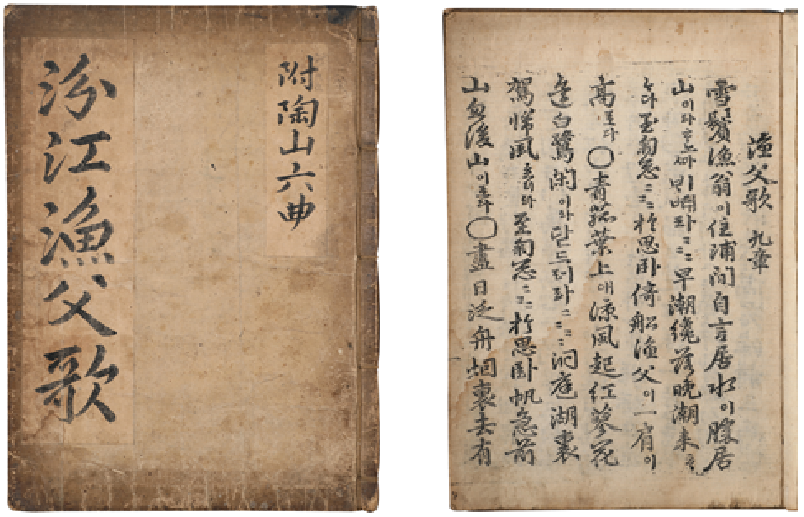 汾江漁父歌
附陶山六曲
漁父歌 九章
雪鬢漁翁이住浦間自言居水이勝居
山이라ᄒᆞ놋다ᄇᆡᄠᅥ라〃〃早潮纔落晩潮來ᄒᆞ
ᄂᆞ다至匊忩〃〃於思臥倚船漁父이一肩이
高로다○靑菰葉上애凉風起紅蓼花
邊白鷺閑이라닫드러라〃〃洞庭湖裏
駕歸風호리라至匊忩〃〃於思臥帆急前
山忽後山이로다○盡日泛舟烟裏去有